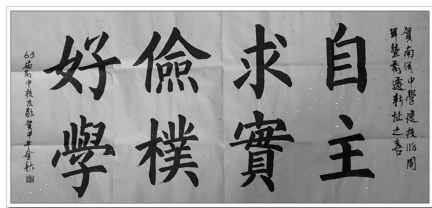 賀南洋中學建校116周
年暨喬遷新址之喜
自主
求實
儉樸
好學
63届高中校友敬賀甲午金秋